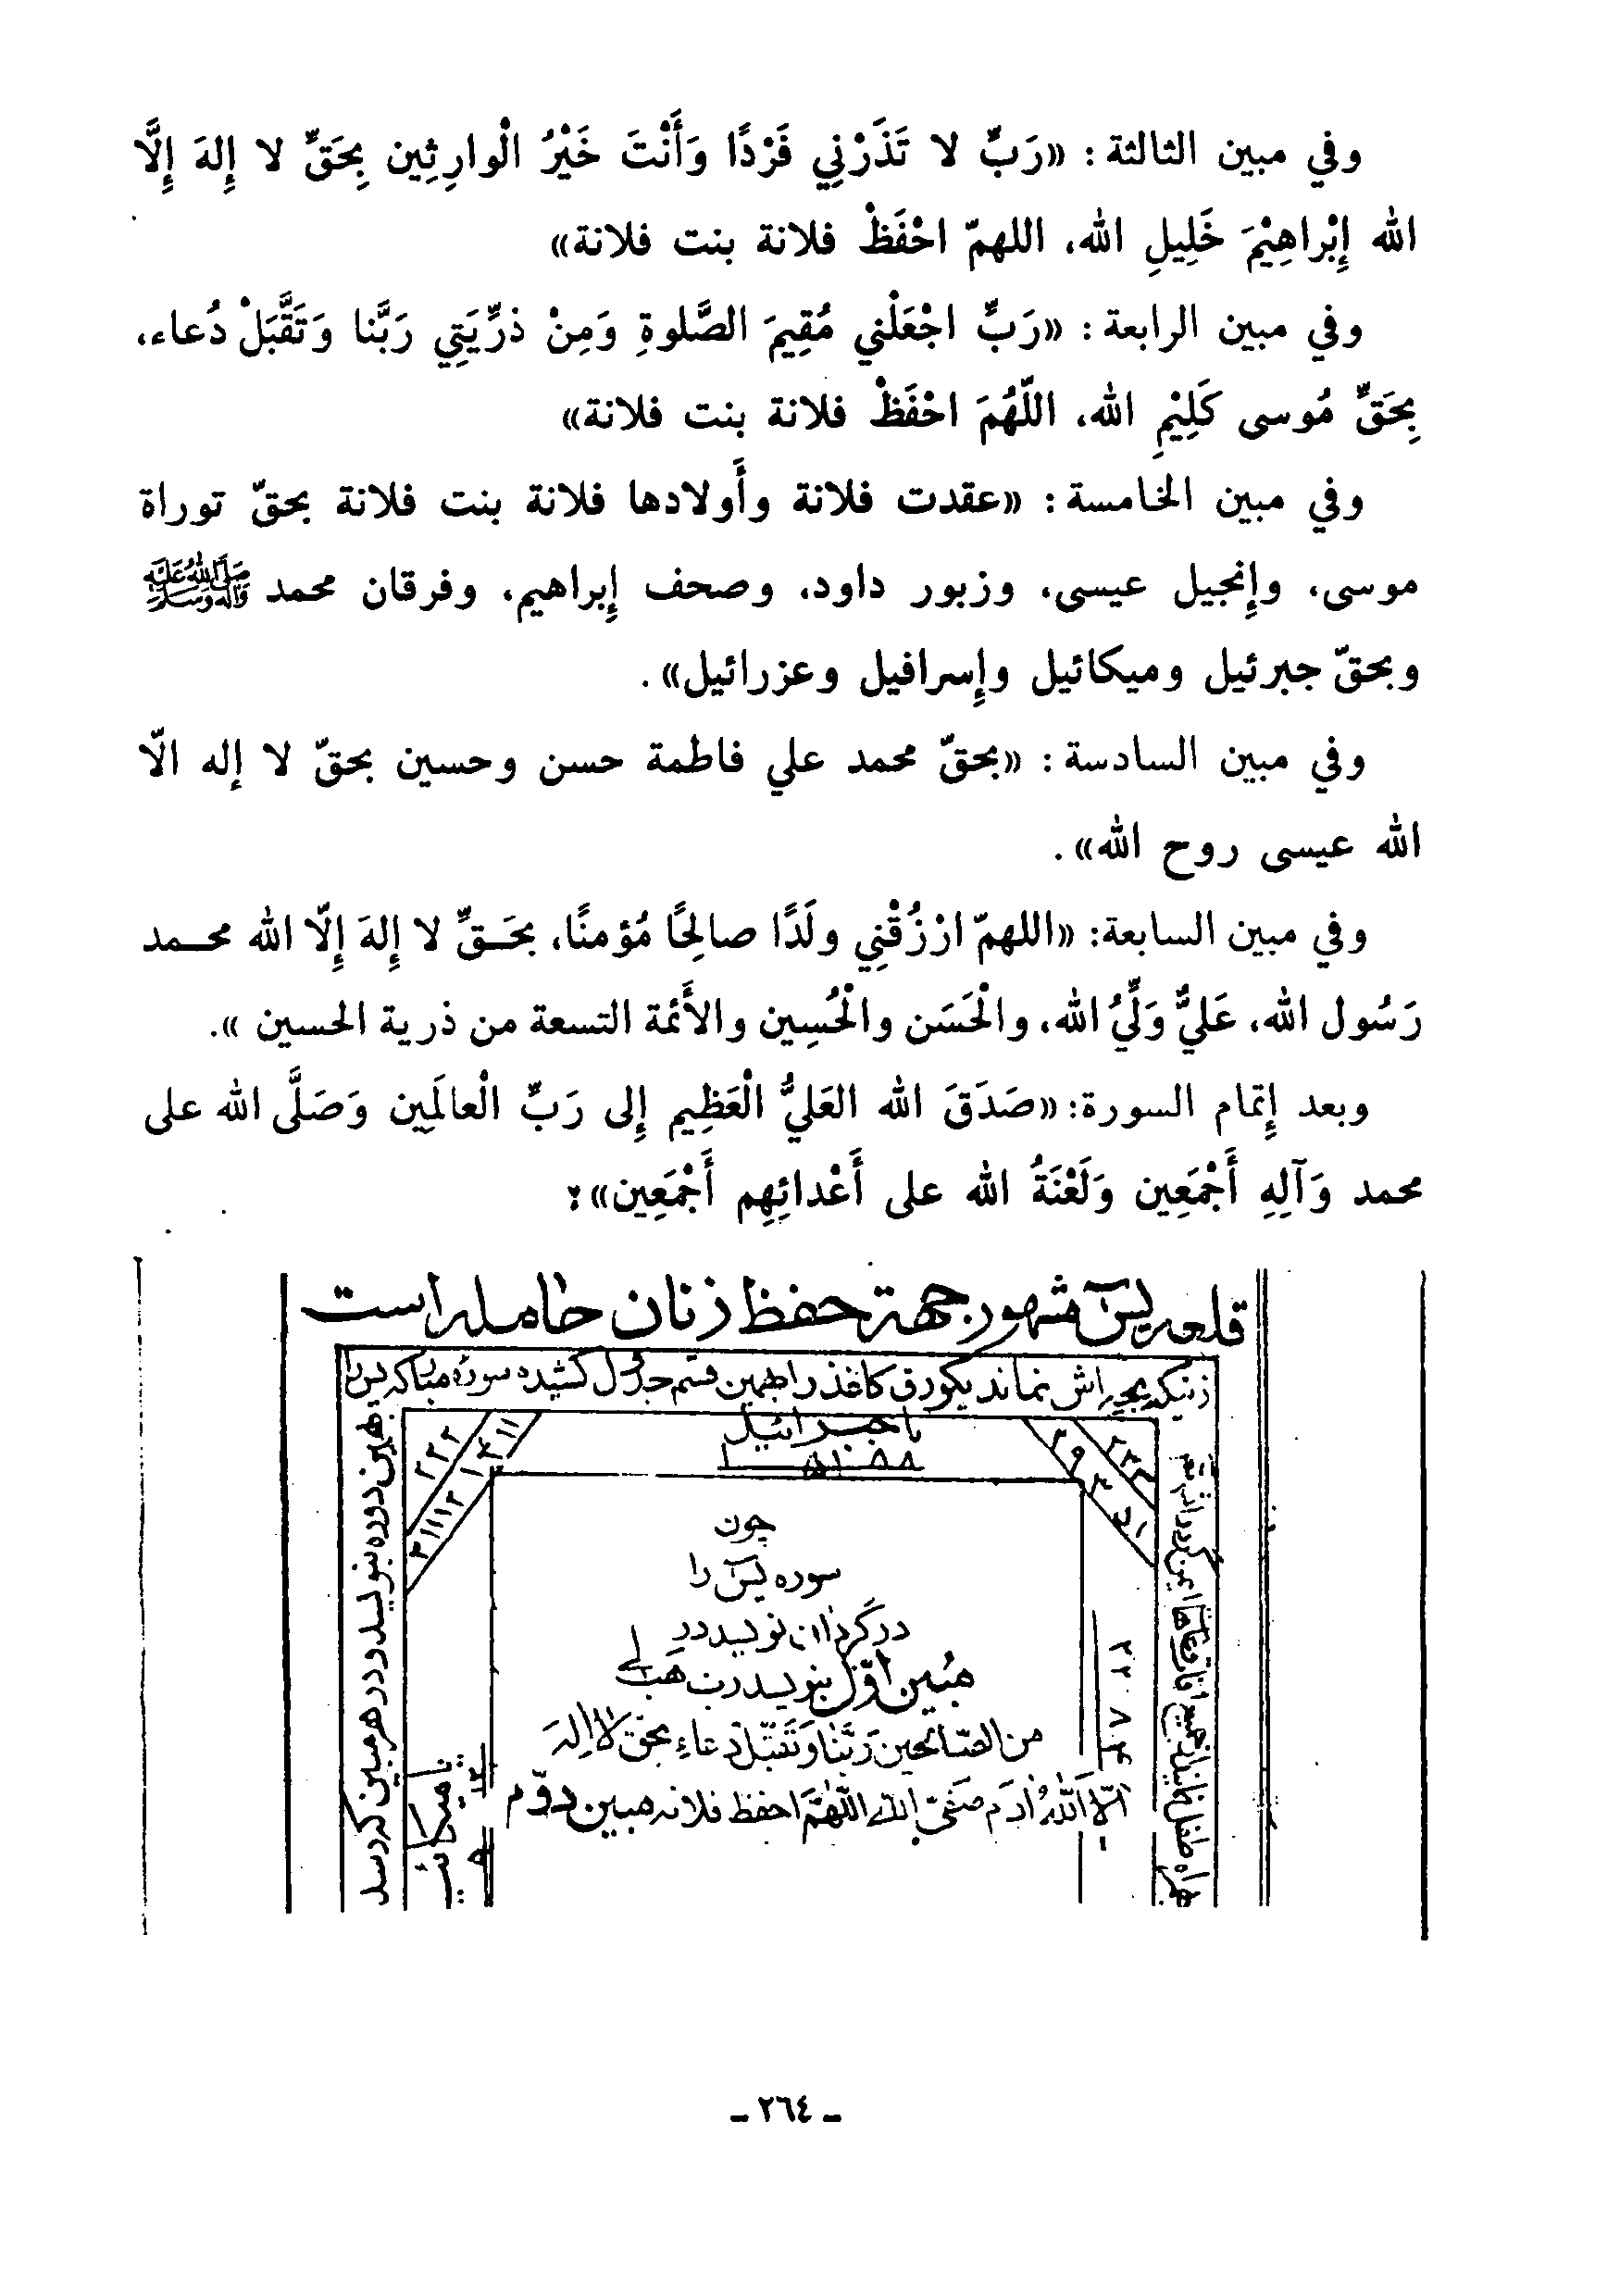 وفي مبين الثالثة : «رَبِّ لا تَذَرْنِي فَرْدًا وَأَنْتَ خَيْرُ الْوارِثِين بِحَقِّ لا إِلهَ إِلَّا
الله إِبْراهِيْمَ خَلِيلِ الله، اللهمّ احْفَظْ فلانة بنت فلانة»
وفي مبين الرابعة : «رَبِّ اجْعَلْني مُقِيمَ الصَّلوةِ وَمِنْ ذرِّيَتِي رَبَّنا وَتَقَّبَلْ دُعاء،
بِحَقِّ مُوسى كَلِيْمِ الله، اللّهُمَ احْفَظْ فلانة بنت فلانة»
وفي مبين الخامسة : «عقدت فلانة وأَولادها فلانة بنت فلانة بحقّ توراة
موسى، وإِنجيل عيسى، وزبور داود، وصحف إِبراهيم، وفرقان محمد ﷺ
وبحقّ جبرئيل وميكائيل وإِسرافيل وعزرائيل» .
وفي مبين السادسة : «بحقّ محمد علي فاطمة حسن وحسين بحقّ لا إله الّا
الله عيسى روح الله» .
وفي مبين السابعة: «اللهمّ ارْزُقْنِي ولَدًا صالِحًا مُؤمنًا، بحَـقِّ لا إِلهَ إِلّا الله محـمد
رَسُول الله، عَليٌّ وَلِّيُ الله، والْحَسَن والْحُسِين والأَئمة التسعة من ذرية الحسين ».
وبعد إِتمام السورة: «صَدَقَ الله العَليُّ الْعَظِيم إِلى رَبِّ الْعالَمِين وَصَلَّى الله على
محمد وَآلِهِ أَجْمَعِين وَلَعْنَةُ الله على أَعْدائِهِم أَجْمَعِين»؛
قلعه یسٓ مشهور جهة حفظ زنان حامله است
زنیکه بچه اش نماند یکورق کاغذ را بهمین قسم جدول کشیده سوره مبارکه یس را
بهمین دوره بنویسد و در هر مبین که رسد
یا جبرائیل
٢٢٢
٣١١١٢
٢٢ ٨١٤
یا میکائی
چون
سوره یسٓ را
در گردان نویسد در
مُبین اوّل بنویسد رب هب لی
من الصّالحین رَبَّنا وَتَقَبَّل دعاءِ بحق لا اِلهَ
اِلّا اَللّهُ ادَم صَفیّ اللّه اللّهُمَّ احفظ فلانه مبین دوّم
ـ ٢٦٤ ـ